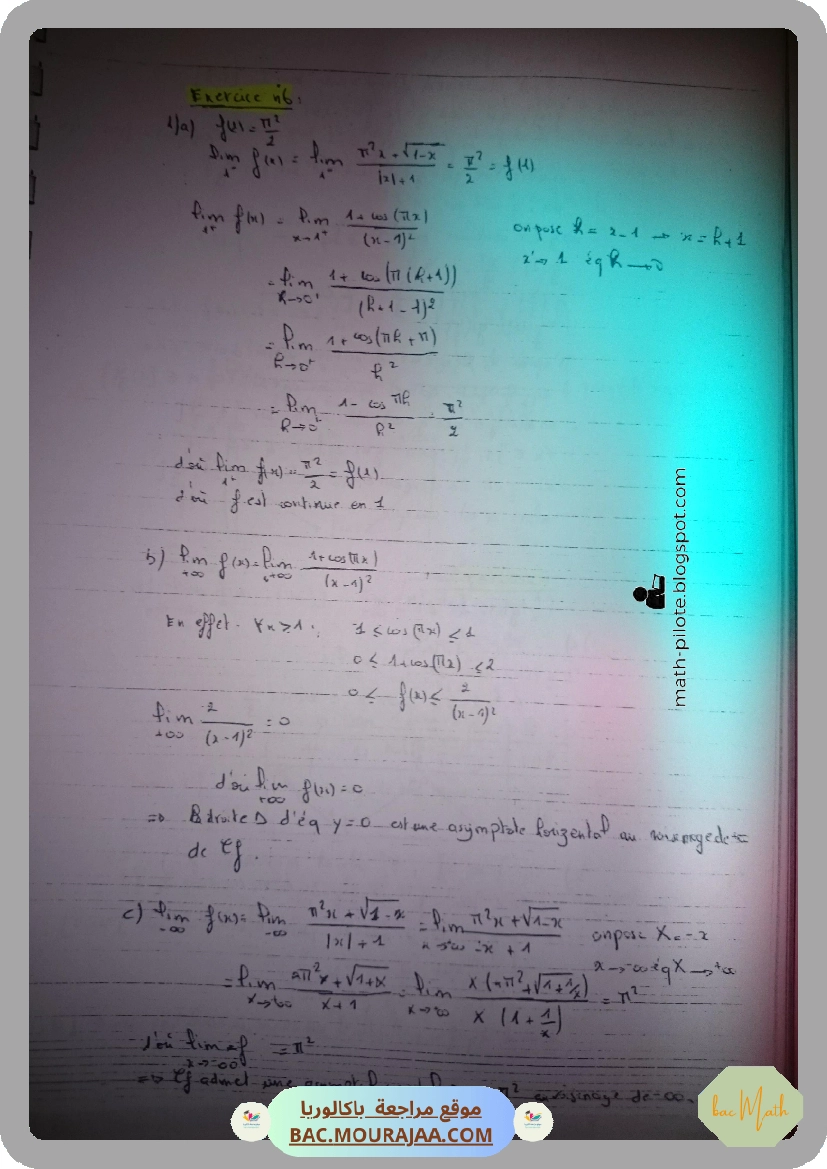 Exercice n°6:
1)a) f(1) = π²/2
lim 1⁻ f(x) = lim 1⁻ (π²x + √(1-x))/(|x|+1) = π²/2 = f(1)
lim 1⁺ f(x) = lim x→1⁺ (1+cos(πx))/(x-1)²
on pose h = x-1 → x = h+1
x→1 éq h→0
= lim h→0⁺ (1+cos(π(h+1)))/(h+1-1)²
= lim h→0⁺ (1+cos(πh+π))/h²
= lim h→0⁺ (1-cos πh)/h² = π²/2
d'où lim 1⁺ f(x) = π²/2 = f(1)
d'où f est continue en 1
b) lim +∞ f(x) = lim +∞ (1+cos(πx))/(x-1)²
En effet. ∀x≥1: -1 ≤ cos(πx) ≤ 1
0 ≤ 1+cos(πx) ≤ 2
0 ≤ f(x) ≤ 2/(x-1)²
lim +∞ 2/(x-1)² = 0
d'où lim +∞ f(x) = 0
⇒ droite Δ d'éq y=0 est une asymptote horizental au
de Cf.
c) lim -∞ f(x) = lim -∞ (π²x+√(1-x))/(|x|+1) = lim x→-∞ (π²x+√(1-x))/(-x+1)
on pose X=-x
x→-∞ éq X→+∞
= lim x→+∞ (-π²x+√(1+x))/(x+1) = lim x→+∞ x(-π²+√(1+1/x))/x(1+1/x) = π²
d'où lim x→-∞ f = π²
⇒ Cf admet une π² au voisinage de -∞.
math-pilote.blogspot.com
موقع مراجعة باكالوريا
BAC.MOURAJAA.COM
bac Math